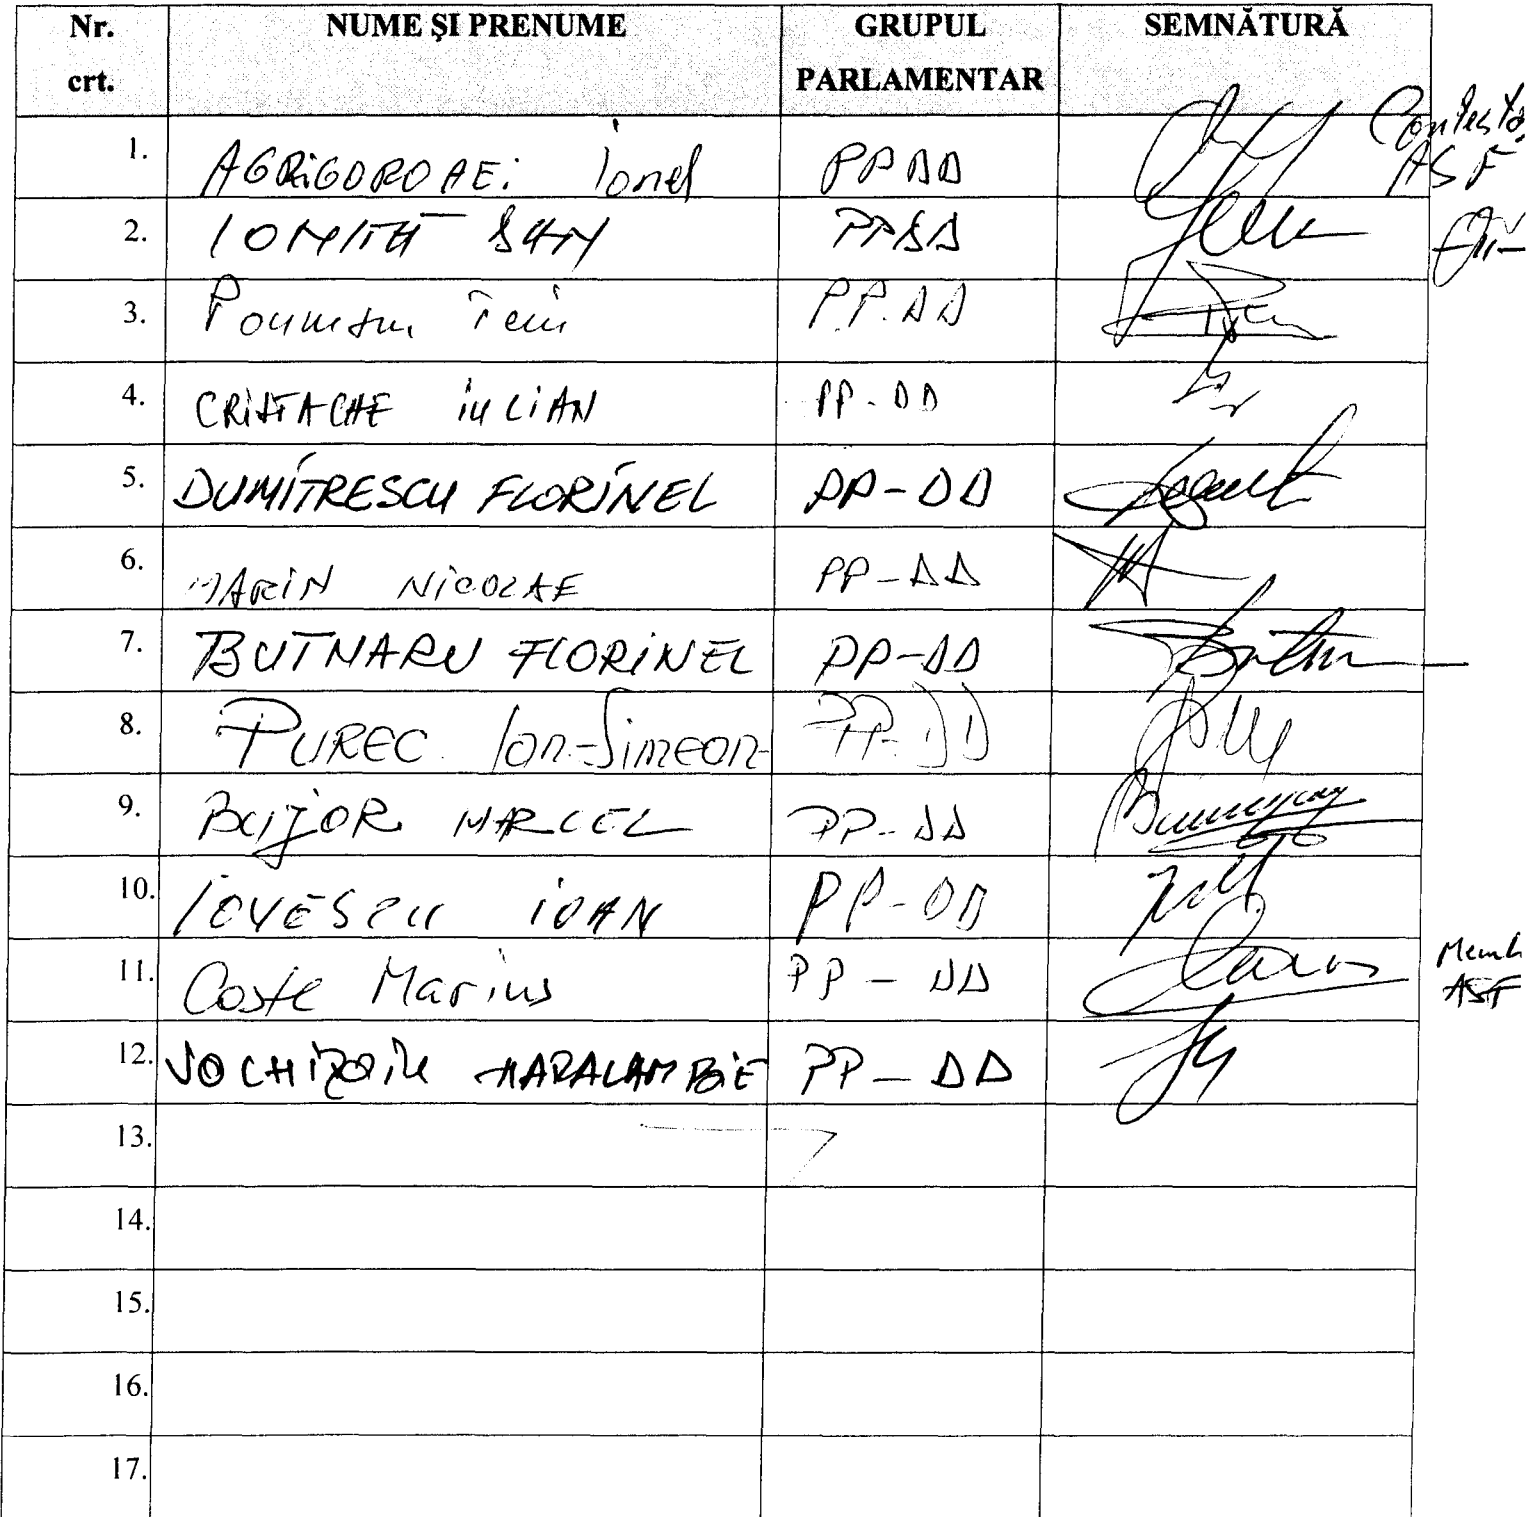 Nr. crt. NUME ŞI PRENUME GRUPUL PARLAMENTAR SEMNĂTURĂ
1. AGRiGOROAEi Ionel PPDD
ASF
2. IONIȚĂ DAN PPDD
3. PP.DD
4. CRISTACHE iULiAN PP-DD
5. DUMITRESCU FLORINEL PP-DD
6. MARiN NiCOLAE PP-DD
7. BUTNARU FLORiNEL PP-DD
8. PUREC Ion-Simeon PP-DD
9. BUJOR MARCEL PP-DD
10. IOVESCU iOAN PP-DD
11. Coste Marius PP-DD
ASF
12. HARALAMBIE PP-DD
13.
14.
15.
16.
17.